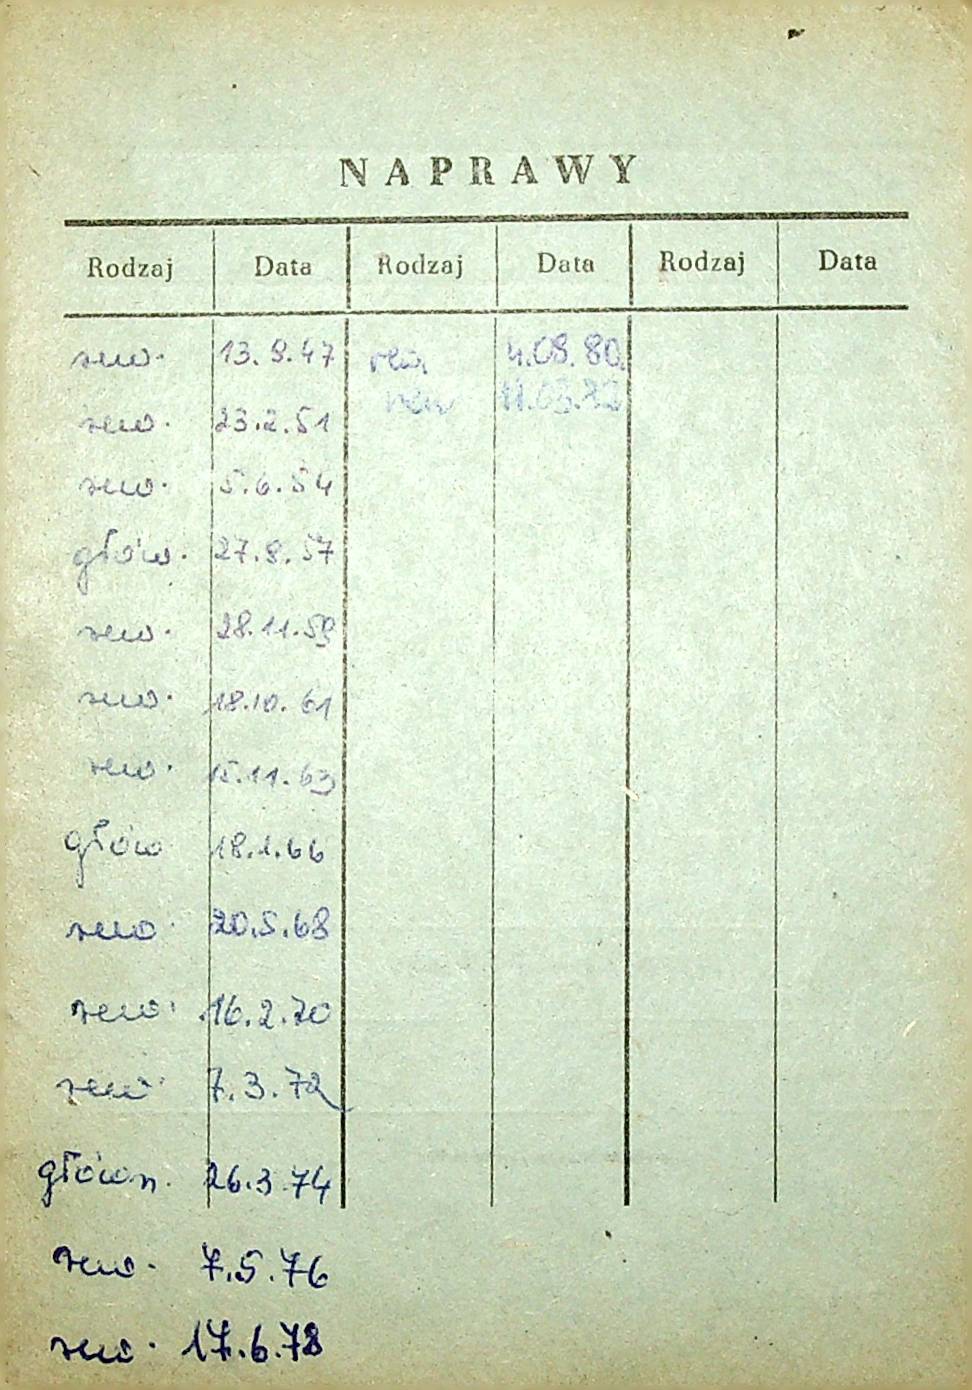 NAPRAWY
Rodzaj Data Rodzaj Data Rodzaj Data
rew. 13.9.47 rew. 4.08.80.
rew. 23.2.51 rew 11.03.82
rew. 5.6.54
głów. 27.8.57
rew. 28.11.59
rew. 18.10.61
rew. 15.11.63
głów 18.1.66
rew. 20.5.68
rew. 16.2.70
rew. 7.3.72
główn. 26.3.74
rew. 7.5.76
rew. 17.6.78